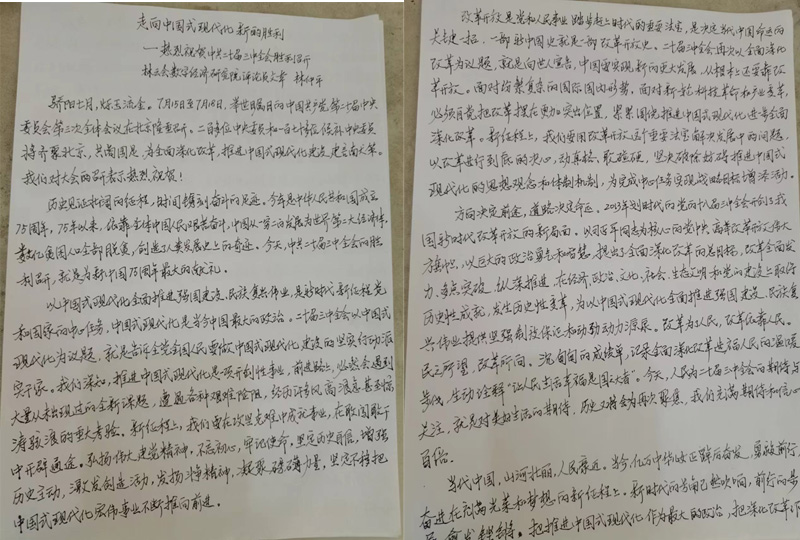 走向中国式现代化新的胜利
——热烈祝贺中共二十届三中全会胜利召开
林三会数字经济研究院评论员文章 林仲平
骄阳七月，烁玉流金。7月15日至7月18日，举世瞩目的中国共产党第二十届中央
委员会第三次全体会议在北京隆重召开。二百多位中央委员和一百七十多位候补中央委员
将齐聚北京，共商国是，为全面深化改革，推进中国式现代化建设，建言献大策。
我们对大会的召开表示热烈祝贺！
历史见证壮阔的征程，时间镌刻奋斗的足迹。今年是中华人民共和国成立
75周年，75年以来，依靠全体中国人民艰苦奋斗，中国从一穷二白发展为世界第二大经济体，
数亿贫困人口全部脱贫，创造了人类发展史上的奇迹。今天，中共二十届三中全会的胜
利召开，就是为新中国75周年最大的献礼。
以中国式现代化全面推进强国建设、民族复兴伟业，是新时代新征程党
和国家的中心任务，中国式现代化是当今中国最大的政治。二十届三中全会以中国式
现代化为议题，就是告诉全党全国人民要做中国式现代化建设的坚实行动派
实干家。我们深知，推进中国式现代化是项开创性事业，前进路上，必然会遇到
大量从未出现过的全新课题，遭遇各种艰难险阻，经历许多风高浪急甚至惊
涛骇浪的重大考验。新征程上，我们要在攻坚克难中成就事业，在敢闯敢干
中开辟通途。弘扬伟大建党精神，不忘初心，牢记使命，坚定历史自信，增强
历史主动，激发创造活力，发扬斗争精神，凝聚磅礴力量，坚定不移把
中国式现代化宏伟事业不断推向前进。
改革开放是党和人民事业大踏步赶上时代的重要法宝，是决定当代中国命运的
关键一招，一部新中国史就是一部改革开放史。二十届三中全会再次以全面深化
改革为议题，就是向世人宣告，中国要实现新的更大发展，从根本上还要靠改
革开放。面对纷繁复杂的国际国内形势，面对新一轮科技革命和产业变革，
必须自觉把改革摆在更加突出位置，紧紧围绕推进中国式现代化进一步全面
深化改革。新征程上，我们要用改革开放这个重要法宝解决发展中的问题，
以改革进行到底的决心，动真格、敢碰硬，坚决破除妨碍推进中国式
现代化的思想观念和体制机制，为完成中心任务实现战略目标增添活力。
方向决定前途，道路决定命运。2013年划时代的党的十八届三中全会开创了我
国新时代改革开放的新局面。以习近平同志为核心的党中央高举改革开放伟大
旗帜，以巨大的政治勇气和智慧，提出了全面深化改革的总目标，改革全面发
力、多点突破、纵深推进，在经济、政治、文化、社会、生态文明和党的建设上取得
历史性成就，发生历史性变革，为以中国式现代化全面推进强国建设、民族复
兴伟业提供坚强制度保证和动力源泉。改革为了人民，改革依靠人民。
民之所望，改革所向。沉甸甸的成绩单，记录全面深化改革造福人民的温暖
步伐，生动诠释"让人民生活幸福是国之大者"。今天，人民为二十届三中全会的期待与
关注，就是对美好生活的期待，历史又将会为再次聚焦，我们充满期待和信心
百倍。
当代中国，山河壮丽，人民豪迈。当今，亿万中华儿女正踔厉奋发，勇毅前行
奋进在充满光荣和梦想的新征程上。新时代的号角已然吹响，前行的号
把推进中国式现代化作为最大的政治，把深化改革作